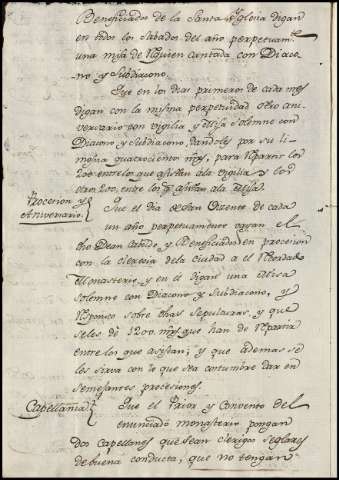 Beneficiados de la Santa Yglesia digan
en todos los Sabados del año perpetuamte
una misa de Requien cantada con Diaco-
no y Subdiacono.
Que en los dias primeros de cada mes
digan con la misma perpetuidad otro ani-
versario con vigilia y Misa Solemne con
Diacono y Subdiacono, dandoles por su li-
mosna quatrocientos mrs, para repartir los
200 entre los que asistan ala vigilia y los
otros 200 entre los q asistan ala Misa.
Procesion y
Aniversario.
Que el dia de San de cada
un año perpetuamente vayan el
dho Dean Cabildo y Beneficiados en procesion
con la clerecia dela ciudad a el
Monasterio, y en el digan una Misa
Solemne con Diacono y Subdiacono, y
Responso sobre dhas Sepulturas, y que
seles dè 1200 mrs que han de repartir
entre los que asistan; y que ademas se
les sirva con lo que sea costumbre dar en
semejantes procesiones.
Capellania
Que el Prior y Convento del
enunciado monasterio pongan
dos capellanes que sean clerigos seglares
de buena conducta, que no tengan